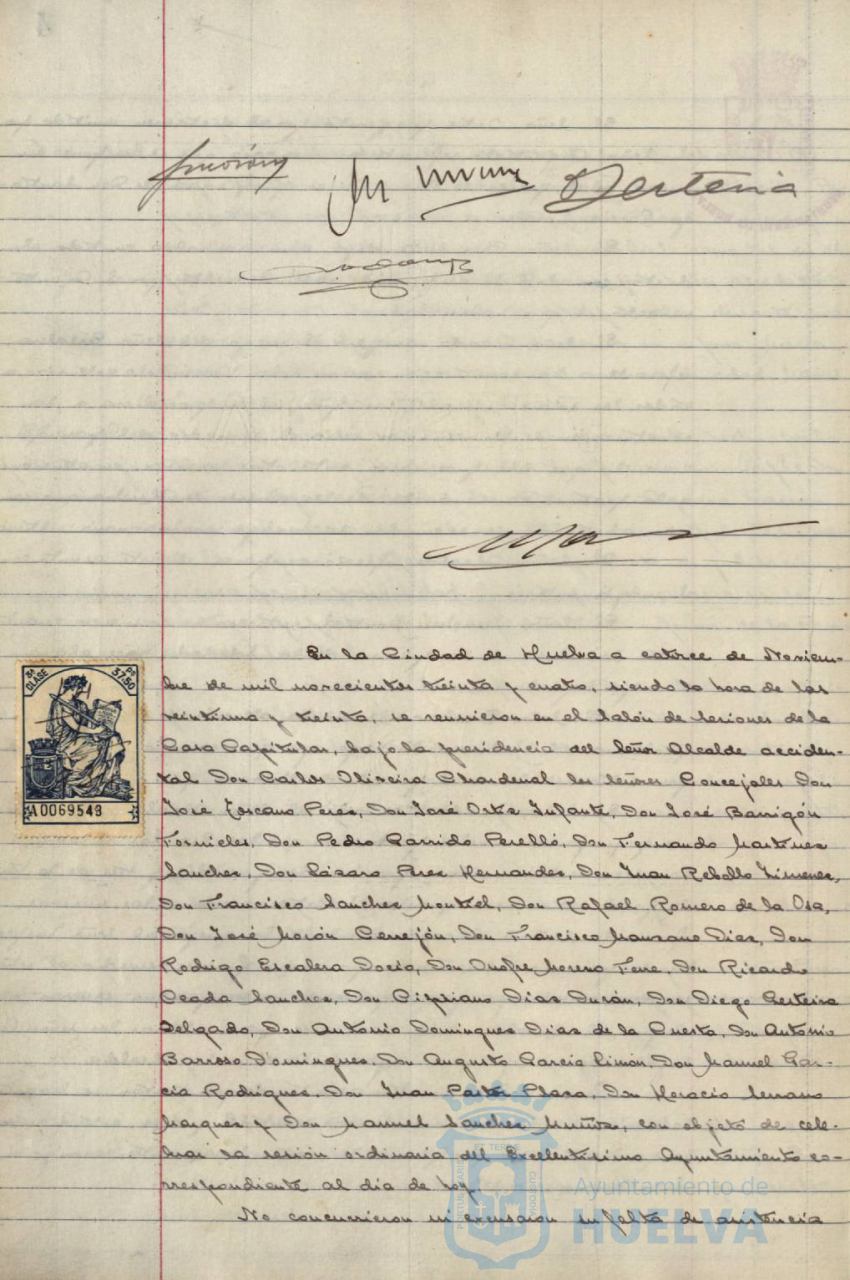 Gesteria
En la Ciudad de Huelva a catorce de Noviem-
bre de mil novecientos treinta y cuatro, siendo la hora de las
veintiuna y treinta, se reunieron en el Salón de Sesiones de la
Casa Capitular, bajo la presidencia del Señor Alcalde acciden-
tal Don Carlos Oliveira Chardenal los señores Concejales Don
José Toscano Perez, Don José Ortiz Infante, Don José Barrigón
Fornieles, Don Pedro Garrido Perelló, Don Fernando Martinez
Sanchez, Don Lázaro Perez Hernandez, Don Juan Rebollo Jimenez,
Don Francisco Sanchez Montiel, Don Rafael Romero de la Osa,
Don José Morón Cerrejón, Don Francisco Manzano Diaz, Don
Rodrigo Escalera Docio, Don Onofre Moreno Ferre, Don Ricardo
Ceada Sanchez, Don Cipriano Diaz Durán, Don Diego Gesteira
Delgado, Don Antonio Dominguez Diaz de la Cuesta, Don Antonio
Barroso Dominguez, Don Augusto Garcia Limón, Don Manuel Gar-
cia Rodriguez, Don Juan Pastor Plaza, Don Horacio Serrano
Marquez y Don Manuel Sanchez Muñoz, con objeto de cele-
brar la sesión ordinaria del Excelentísimo Ayuntamiento co-
rrespondiente al dia de hoy.
No concurrieron ni excusaron su falta de asistencia
3ª CLASE
37'50 Pts
A0069549
Ayuntamiento de
HUELVA